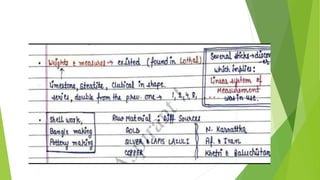 • Weights & measures → existed (found in Lothal)
Limestone, steatite, cubical in shape.
series, double from the prev. one → 1, 2, 4, 8,
Several sticks → discover
which implies:
Linear system of
Measurement
was in use.
• Shell work,
Bangle making
Pottery making
Raw Material & Diff Sources
GOLD
SILVER & LAPIS LAZULI
COPPER
N. Karnatka
Af. & Iran
Khetri & Baluchistan